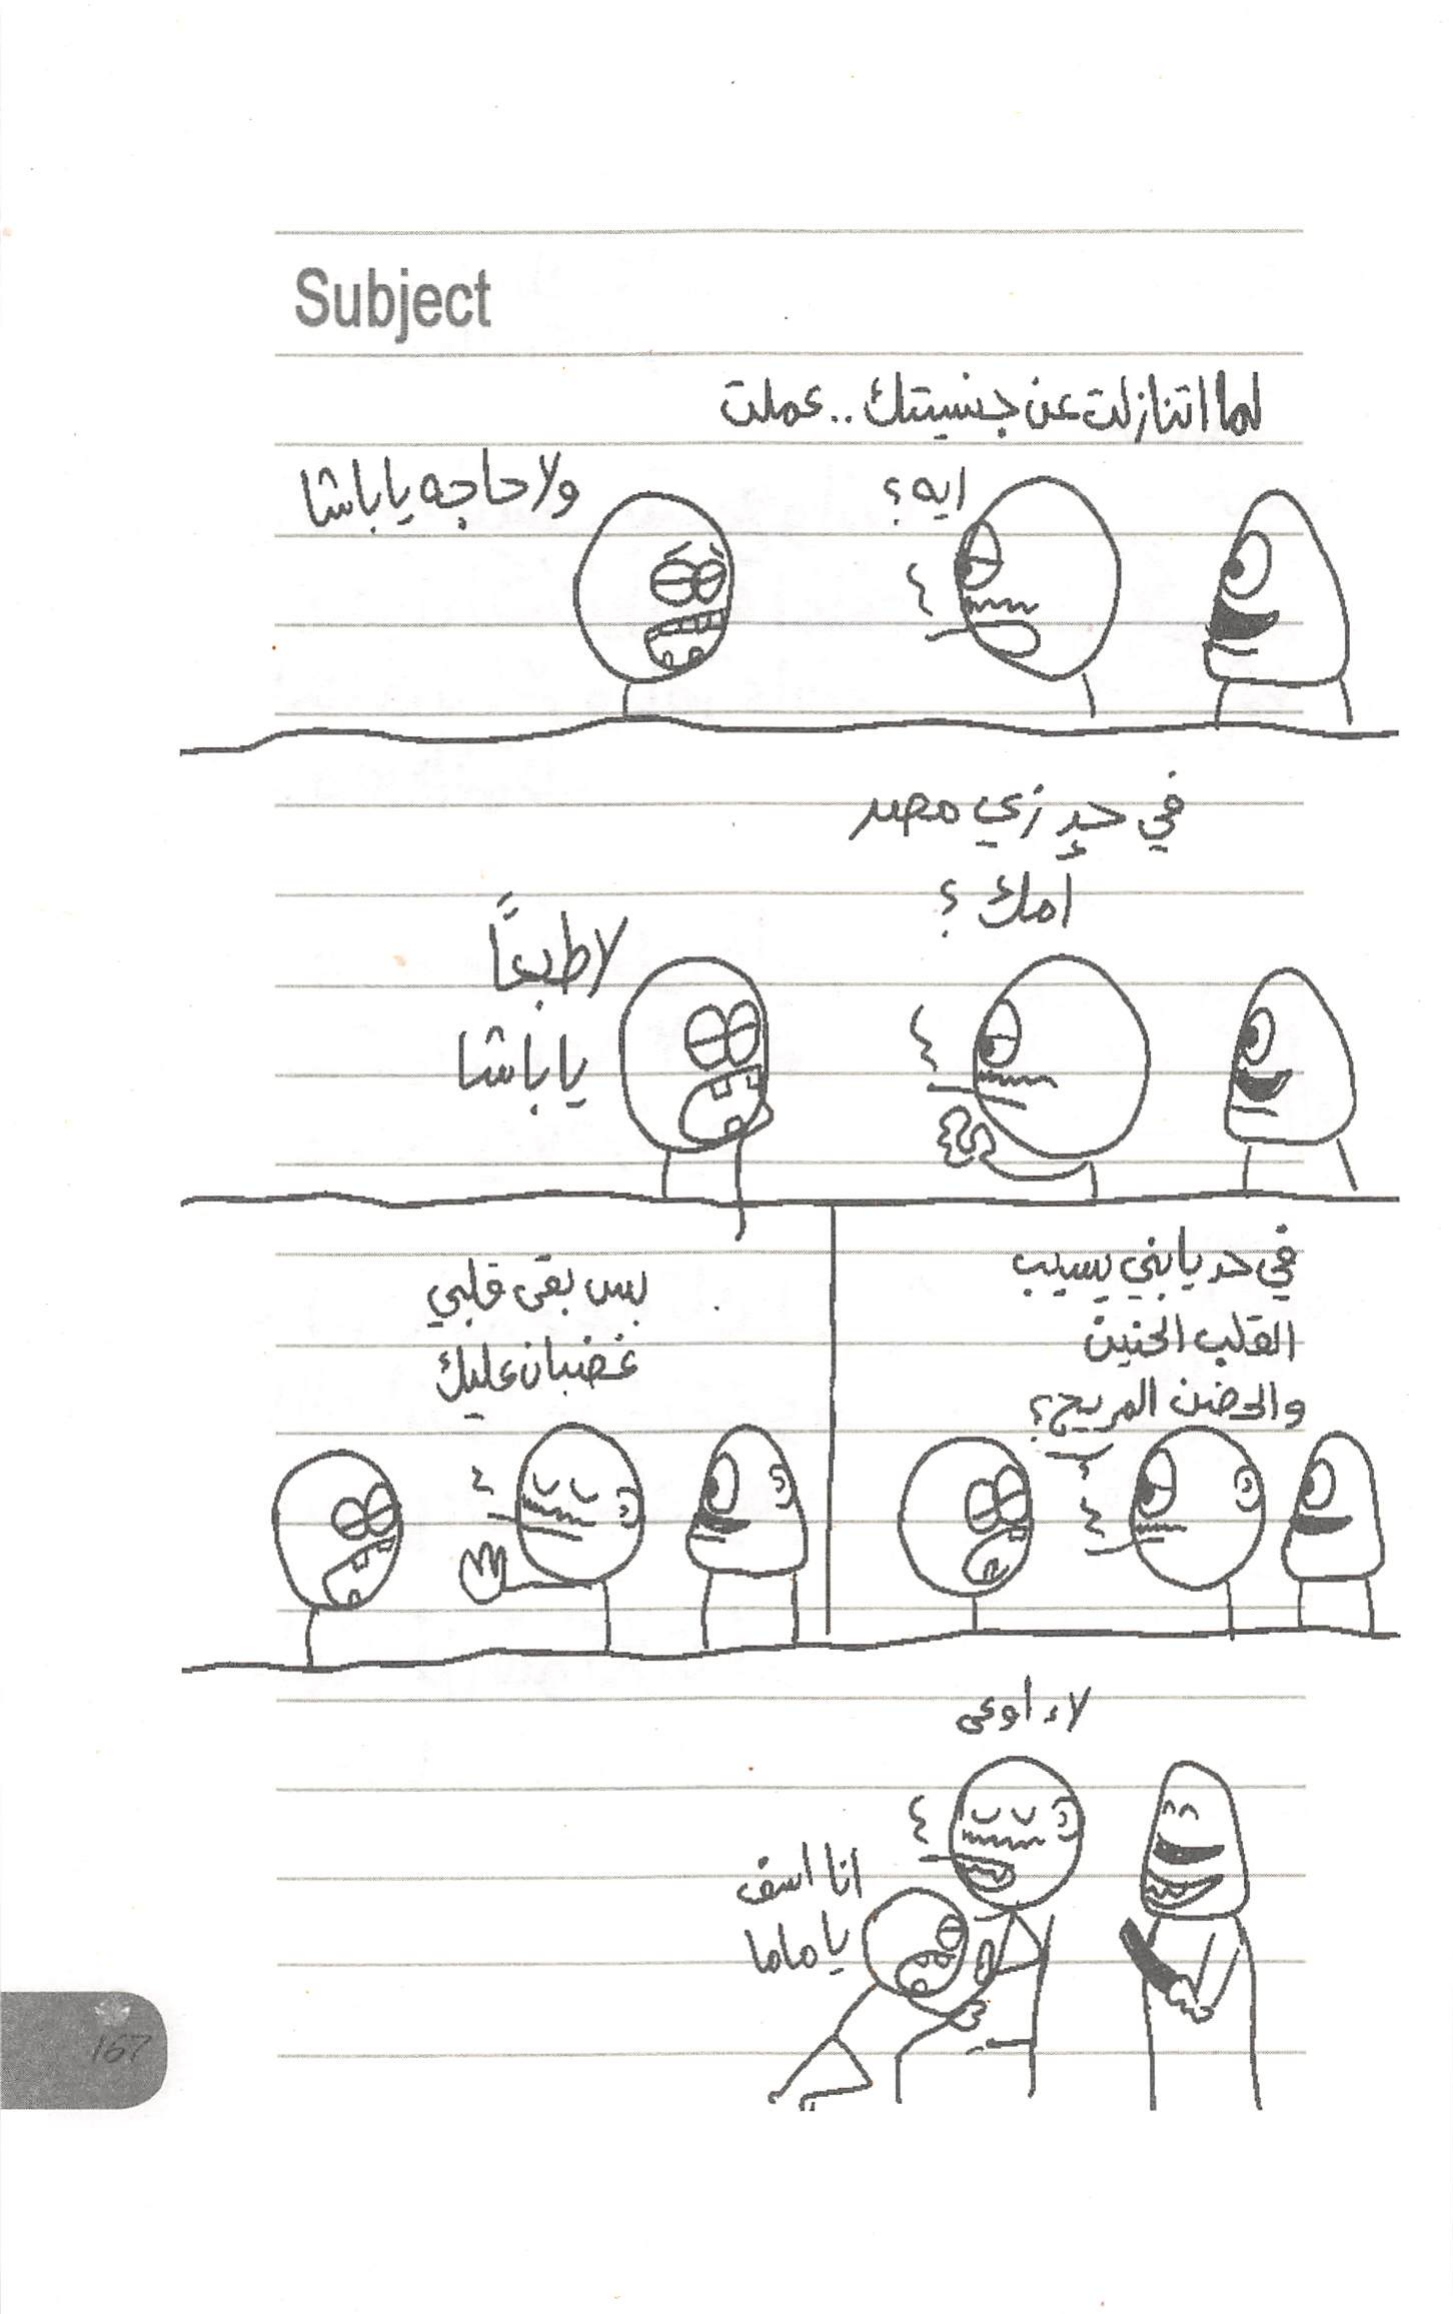 Subject
لما اتنازلت عن جنسيتك.. عملت
ايه؟
ولا حاجه يا باشا
في حدِ زي مصر
أمك؟
لا طبعًا
يا باشا
في حد يابني يسيب
القلب الحنين
والحضن المريح؟
بس بقى قلبي
غضبان عليك
لاء اوعى
انا اسف
يا ماما
167